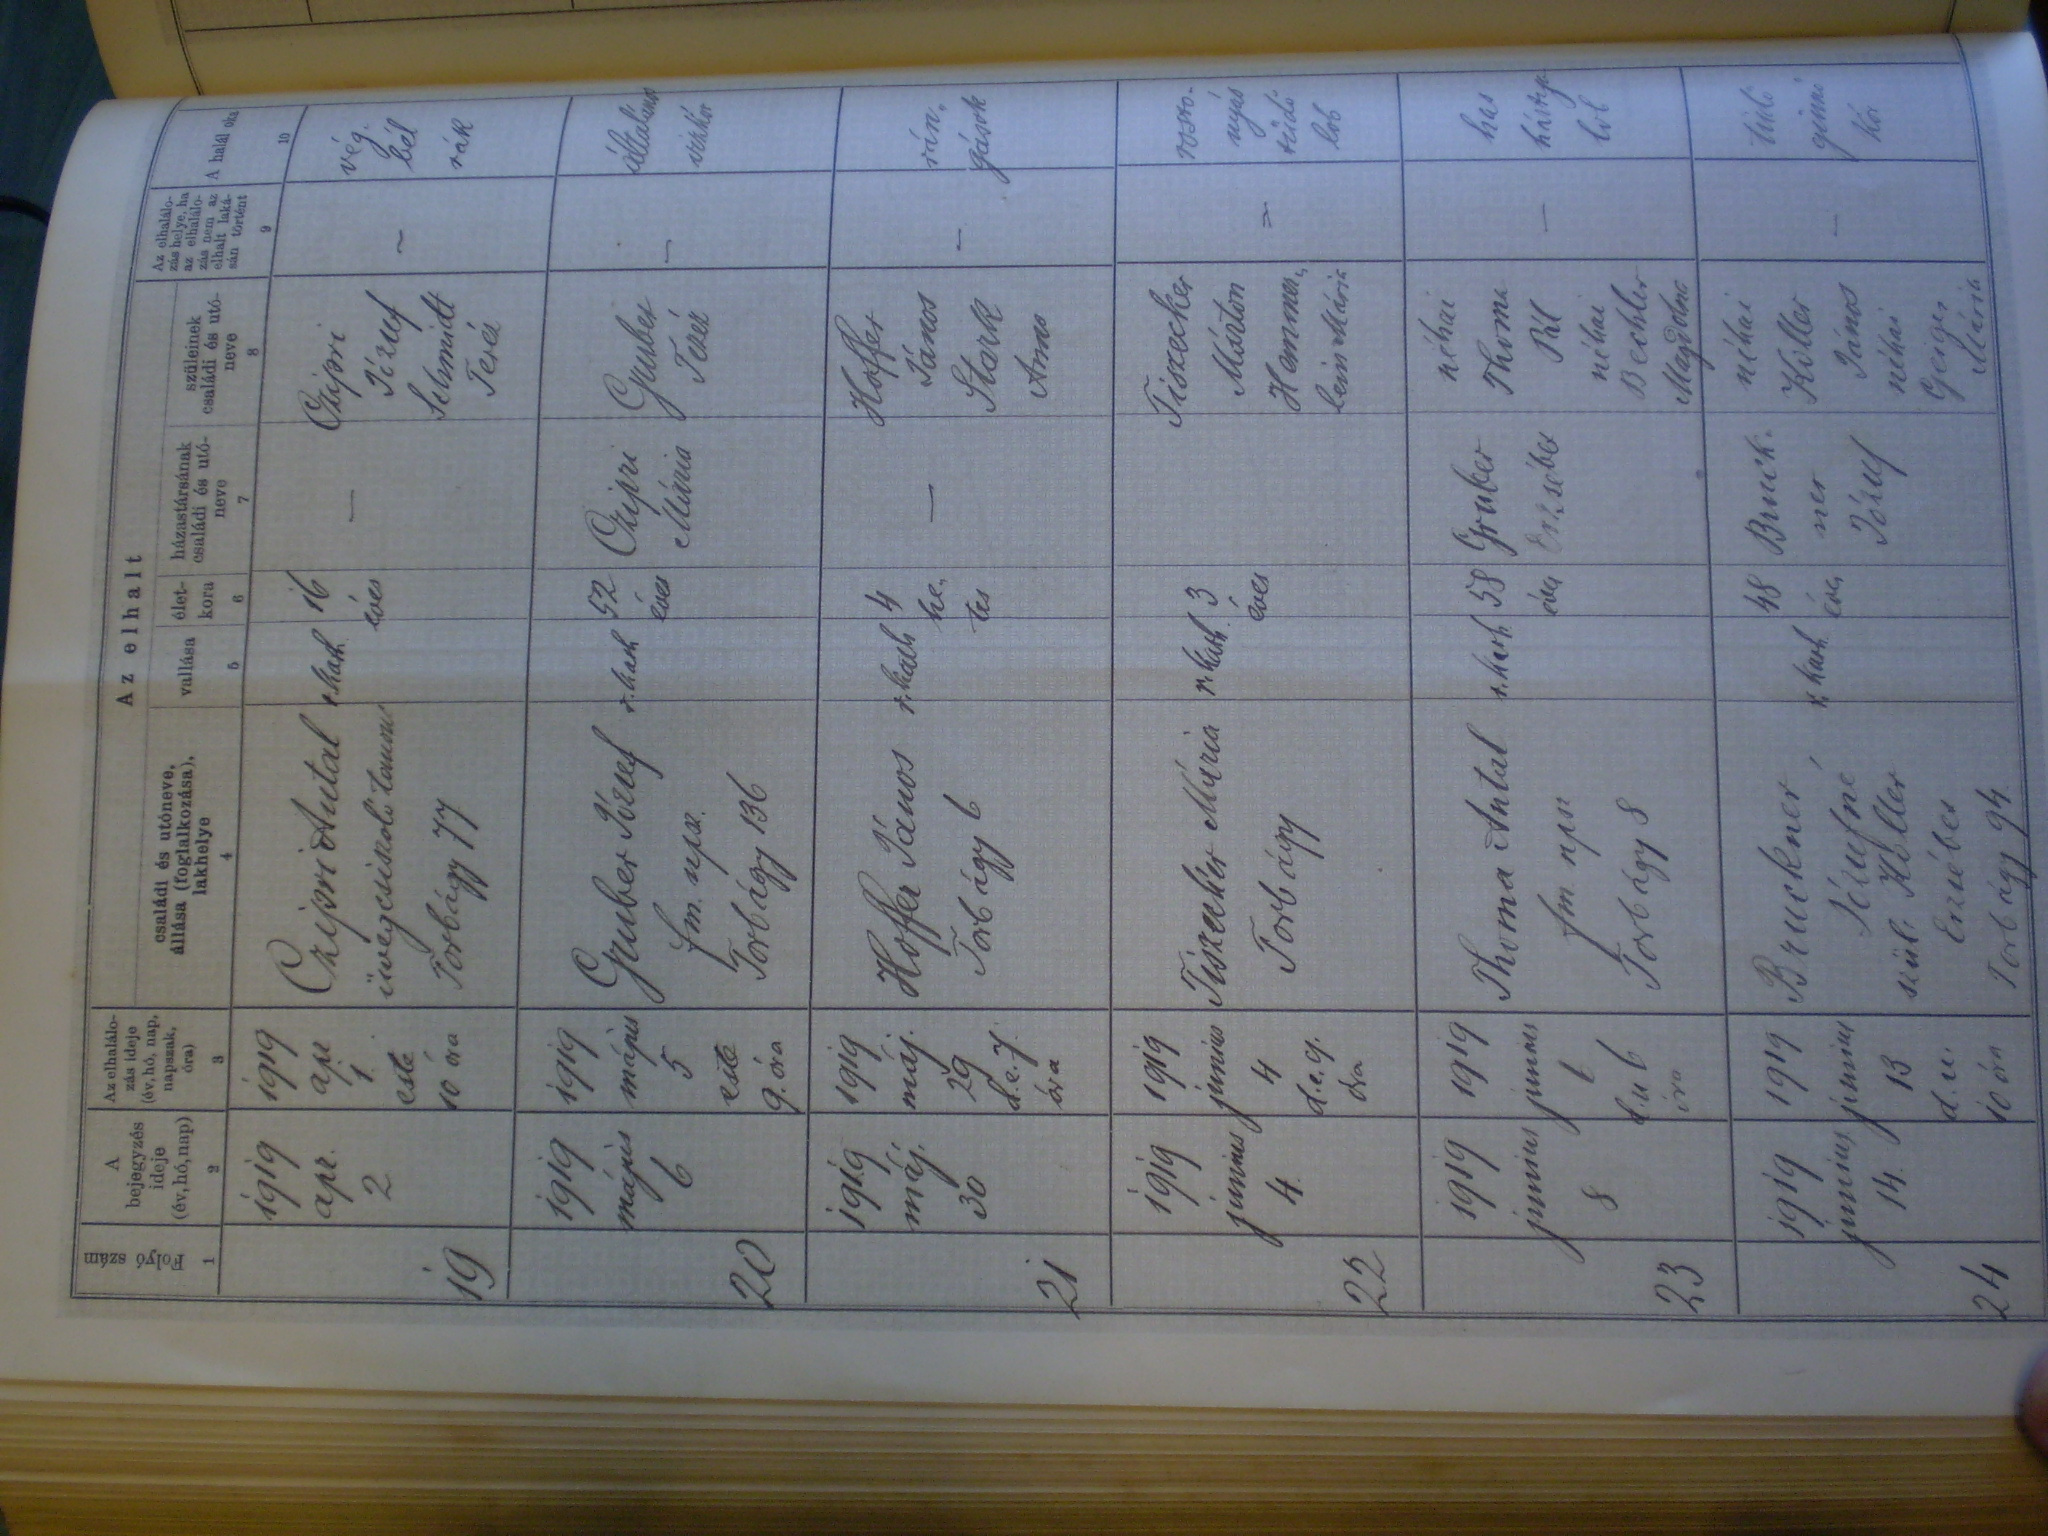 Az elhalt
Folyó szám
A bejegyzés ideje (év, hó, nap)
Az elhalálo-
zás ideje
(év, hó, nap,
napszak,
óra)
családi és utóneve,
állása (foglalkozása),
lakhelye
vallása
élet-
kora
házastársának
családi és utó-
neve
szüleinek
családi és utó-
neve
Az elhalálo-
zás helye, ha
az elhalálo-
zás nem az
elhalt laká-
sán történt
A halál oka
1 2 3 4 5 6 7 8 9 10
19
1919
apr.
2
1919
apr
1.
este
10 óra
Czipri Antal
üvegcsiszoló tanonc
Torbágy 77
r. kath
16
éves
—
Czipri
József
Schmidt
Teréz
—
vég-
bél
rák
20
1919
május
6
1919
május
5
este
9. óra
Gruber József
fm. nps.
Torbágy 136
r. kath
52
éves
Czipri
Mária
Gruber
Teréz
—
általános
21
1919
máj.
30
1919
máj.
29
d.e. 7.
óra
Hoffer János
Torbágy 6
r. kath
4
he-
tes
—
Hoffer
János
Stark
Anna
—
rán-
gások
22
1919
junius
4.
1919
junius
4
d.e. 9.
óra
Tiszecker Mária
Torbágy
r. kath.
3
éves
Tiszecker
Márton
Hemmer-
lein Mária
=
tüdő
lob
23
1919
junius
8
1919
junius
6
d.u 6
óra
Thoma Antal
fm nps
Torbágy 8
r. kath
58
éves
Gruber
Erzsébet
néhai
Thoma
Pál
néhai
Bechler
Magdolna
—
has
hártya
lob
24
1919
junius
14.
1919
junius
13
d.u.
10 óra
Bruckner
Józsefné
szül. Koller
Erzsébet
Torbágy 94.
r. kath
48
éves
Bruck-
ner
József
néhai
Koller
János
néhai
Geiger
Mária
—
tüdő
gümő
kór